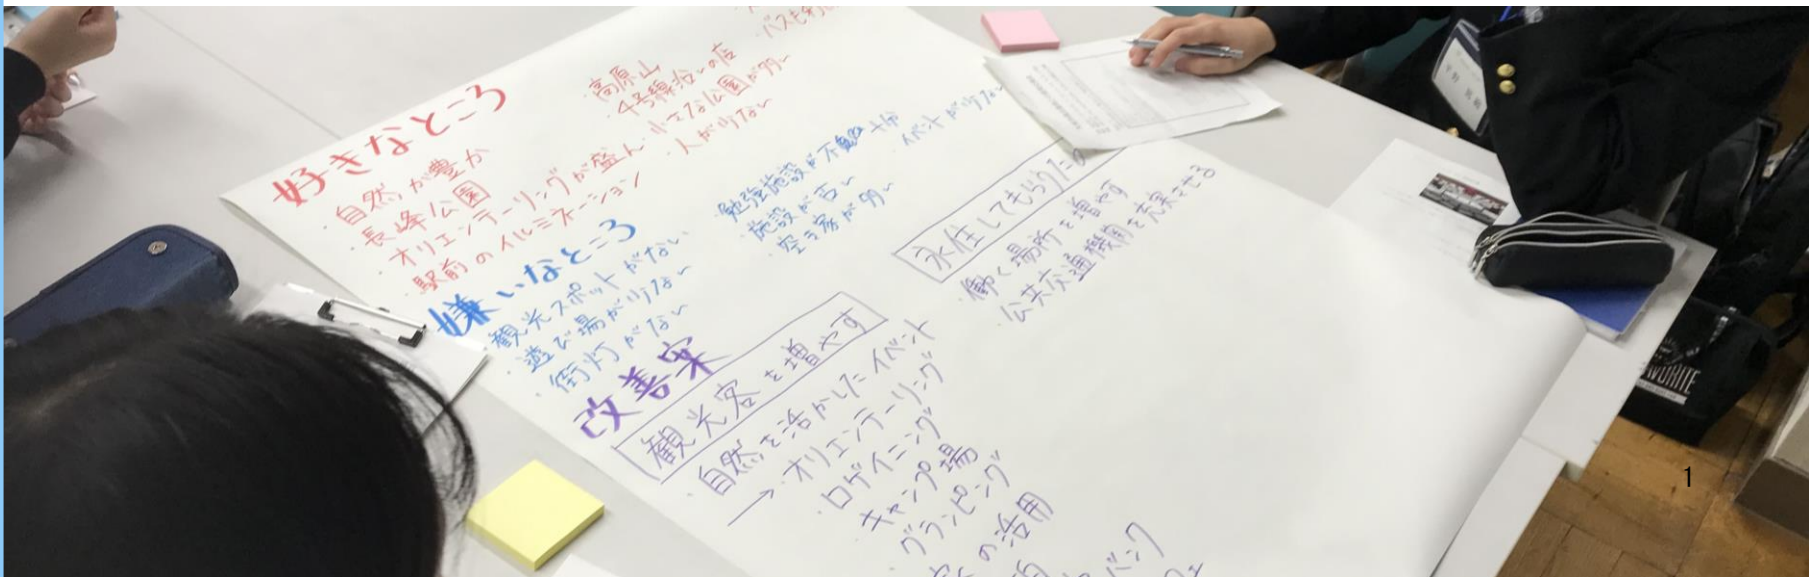 好きなところ
・自然が豊か
・長峰公園
・オリエンテーリングが盛ん
・駅前のイルミネーション
・高原山
・4号線沿いの店
・小さな公園が多い
・人が少ない
嫌いなところ
・観光スポットがない
・遊び場が少ない
・街灯がない
・勉強施設が不十分
・施設が古い
・空き家が多い
・イベントが少ない
改善案
観光客を増やす
・自然を活かしたイベント
→・オリエンテーリング
・ロゲイニング
キャンプ場
グランピング
の活用
永住してもらうため
・働く場所を増やす
・公共交通機関を充実させる
1